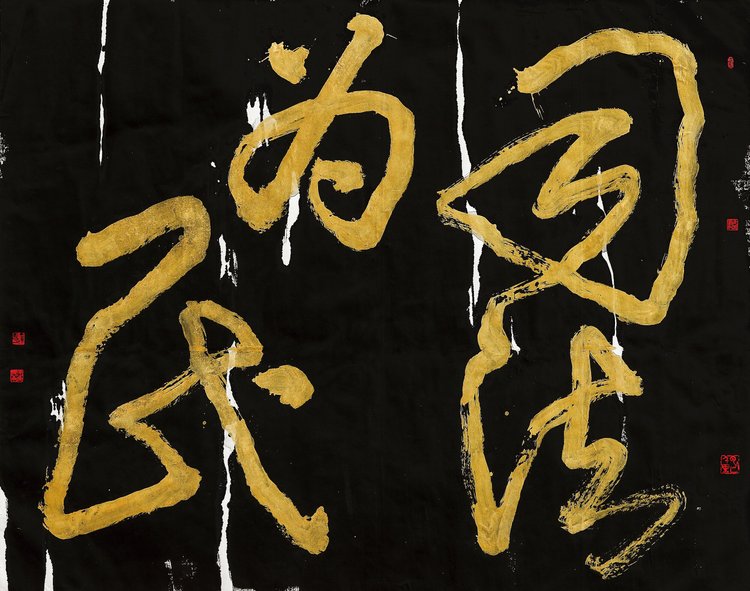 司法
为民